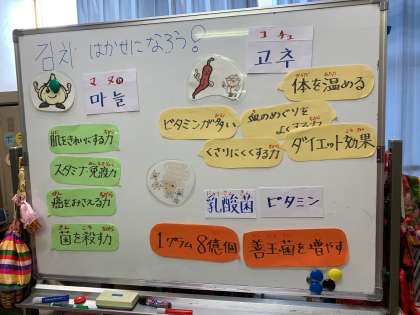 김치 はかせになろう!
マヌル
마늘
肌をきれいにする力
スタミナ・免疫力
癌をおさえる力
菌を殺す力
コチュ
고추
体を温める
ビタミンが多い
血のめぐりをよくする力
くさりにくくする力
ダイエット効果
乳酸菌
ビタミン
1グラム8億個
善玉菌を増やす